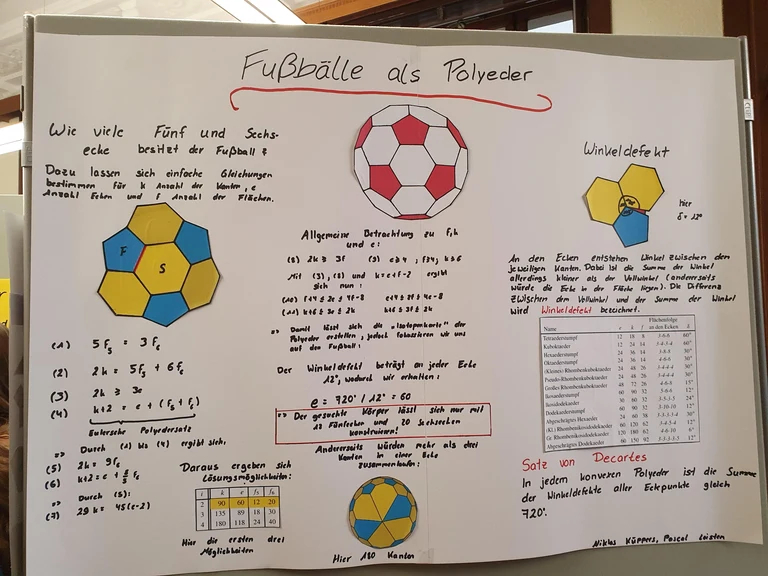 Fußbälle als Polyeder
Wie viele Fünf und Sechs-
ecke besitzt der Fußball?
Dazu lassen sich einfache Gleichungen
bestimmen für k Anzahl der Kanten, e
Anzahl Ecken und f Anzahl der Flächen.
F
S
(1) 5f₅ = 3f₆
(2) 2k = 5f₅ + 6f₆
(3) 2k ≥ 3e
(4) k+2 = e + (f₅ + f₆)
Eulersche Polyedersatz
=> Durch (1) bis (4) ergibt sich,
(5) 2k = 9f₅
(6) k+2 = e +
=> Durch (5):
(7) 29k = 45(e-2)
Daraus ergeben sich
Lösungsmöglichkeiten:
i k e f₅ f₆
2 90 60 12 20
3 135 89 18 30
4 180 118 24 40
Hier die ersten drei
Möglichkeiten
Allgemeine Betrachtung zu f,k
und e:
(8) 2k ≥ 3f (9) e≥4, f≥4, k≥6
Mit (3), (8) und k=e+f-2 ergibt
sich nun:
(10) f+4 ≤ 2e ≤ 4f-8 e+4 ≤ 2f ≤ 4e-8
(11) k+6 ≤ 3e ≤ 2k k+6 ≤ 3f ≤ 2k
=> Damit lässt sich die "Isotopenkarte" der
Polyeder erstellen, jedoch fokussieren wir uns
auf den Fußball:
Der Winkeldefekt beträgt an jeder Ecke
12°, wodurch wir erhalten:
e = 720° / 12° = 60
=> Der gesuchte Körper lässt sich nur mit
12 Fünfecken und 20 Sechsecken
konstruieren!
Andererseits würden mehr als drei
Kanten in einer Ecke
zusammenlaufen:
Hier 180 Kanten
Winkeldefekt
hier
δ = 12°
An den Ecken entstehen Winkel zwischen den
jeweiligen Kanten. Dabei ist die Summe der Winkel
allerdings kleiner als der Vollwinkel (andererseits
würde die Ecke in der Fläche liegen). Die Differenz
zwischen dem Vollwinkel und der Summe der Winkel
wird Winkeldefekt bezeichnet.
Name e k f Flächenfolge an den Ecken δ
Tetraederstumpf 12 18 8 3-6-6 60°
Kuboktaeder 12 24 14 3-4-3-4 60°
Hexaederstumpf 24 36 14 3-8-8 30°
Oktaederstumpf 24 36 14 4-6-6 30°
(Kleines) Rhombenkuboktaeder 24 48 26 3-4-4-4 30°
Pseudo-Rhombenkuboktaeder 24 48 26 3-4-4-4 30°
Großes Rhombenkuboktaeder 48 72 26 4-6-8 15°
Ikosaederstumpf 60 90 32 5-6-6 12°
Ikosidodekaeder 30 60 32 3-5-3-5 24°
Dodekaederstumpf 60 90 32 3-10-10 12°
Abgeschrägtes Hexaeder 24 60 38 3-3-3-3-4 30°
(Kl.) Rhombenikosidodekaeder 60 120 62 3-4-5-4 12°
Gr. Rhombenikosidodekaeder 120 180 62 4-6-10 6°
Abgeschrägtes Dodekaeder 60 150 92 3-3-3-3-5 12°
Satz von Decartes
In jedem konvexen Polyeder ist die Summe
der Winkeldefekte aller Eckpunkte gleich
720°.
Niklas Küppers, Pascal Leisten